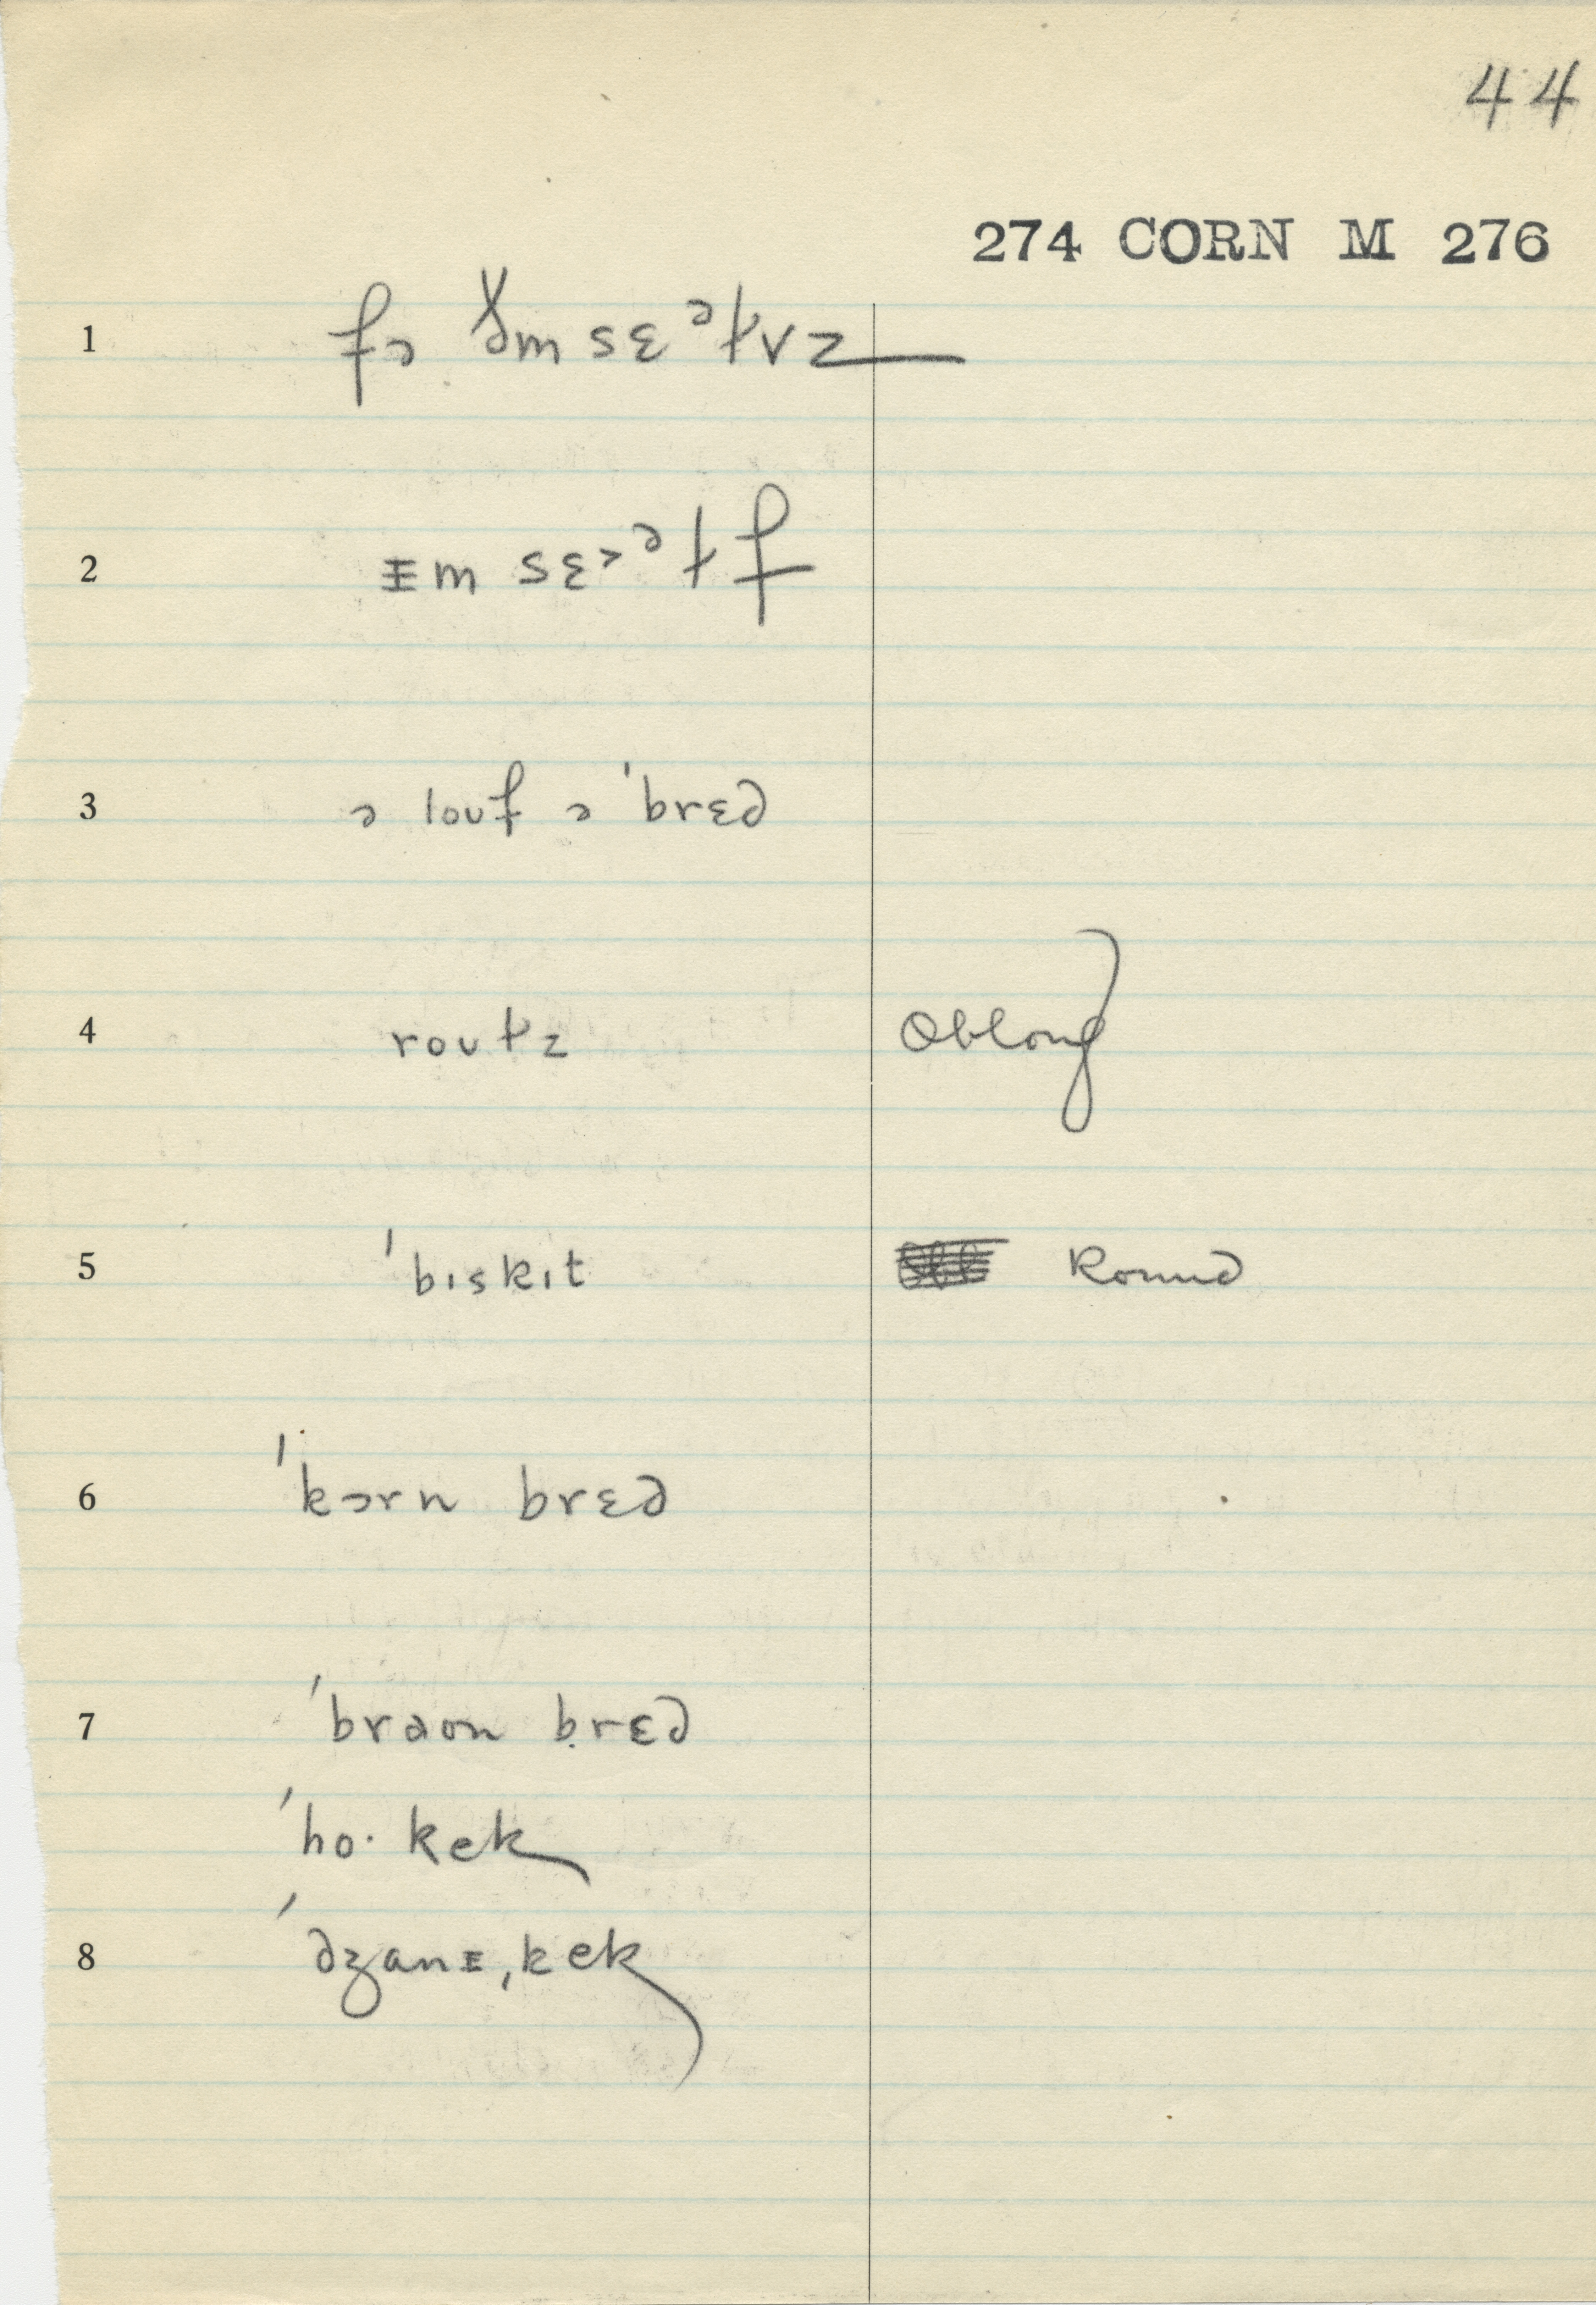 44
274 CORN M 276
1 fɔ ðəmsɛᵊɫvz
2 ɪm sɛ˃ᵊɫf
3 ə louf ə 'brɛd
4 rouɫz Oblong
5 'bɪskɪt Round
6 'kɔrn brɛd
7 'braon brɛd
'ho· kek
8 'dʒanɪˌkek